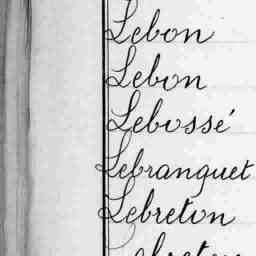 Lebon
Lebon
Lebossé
Lebranguet
Lebreton